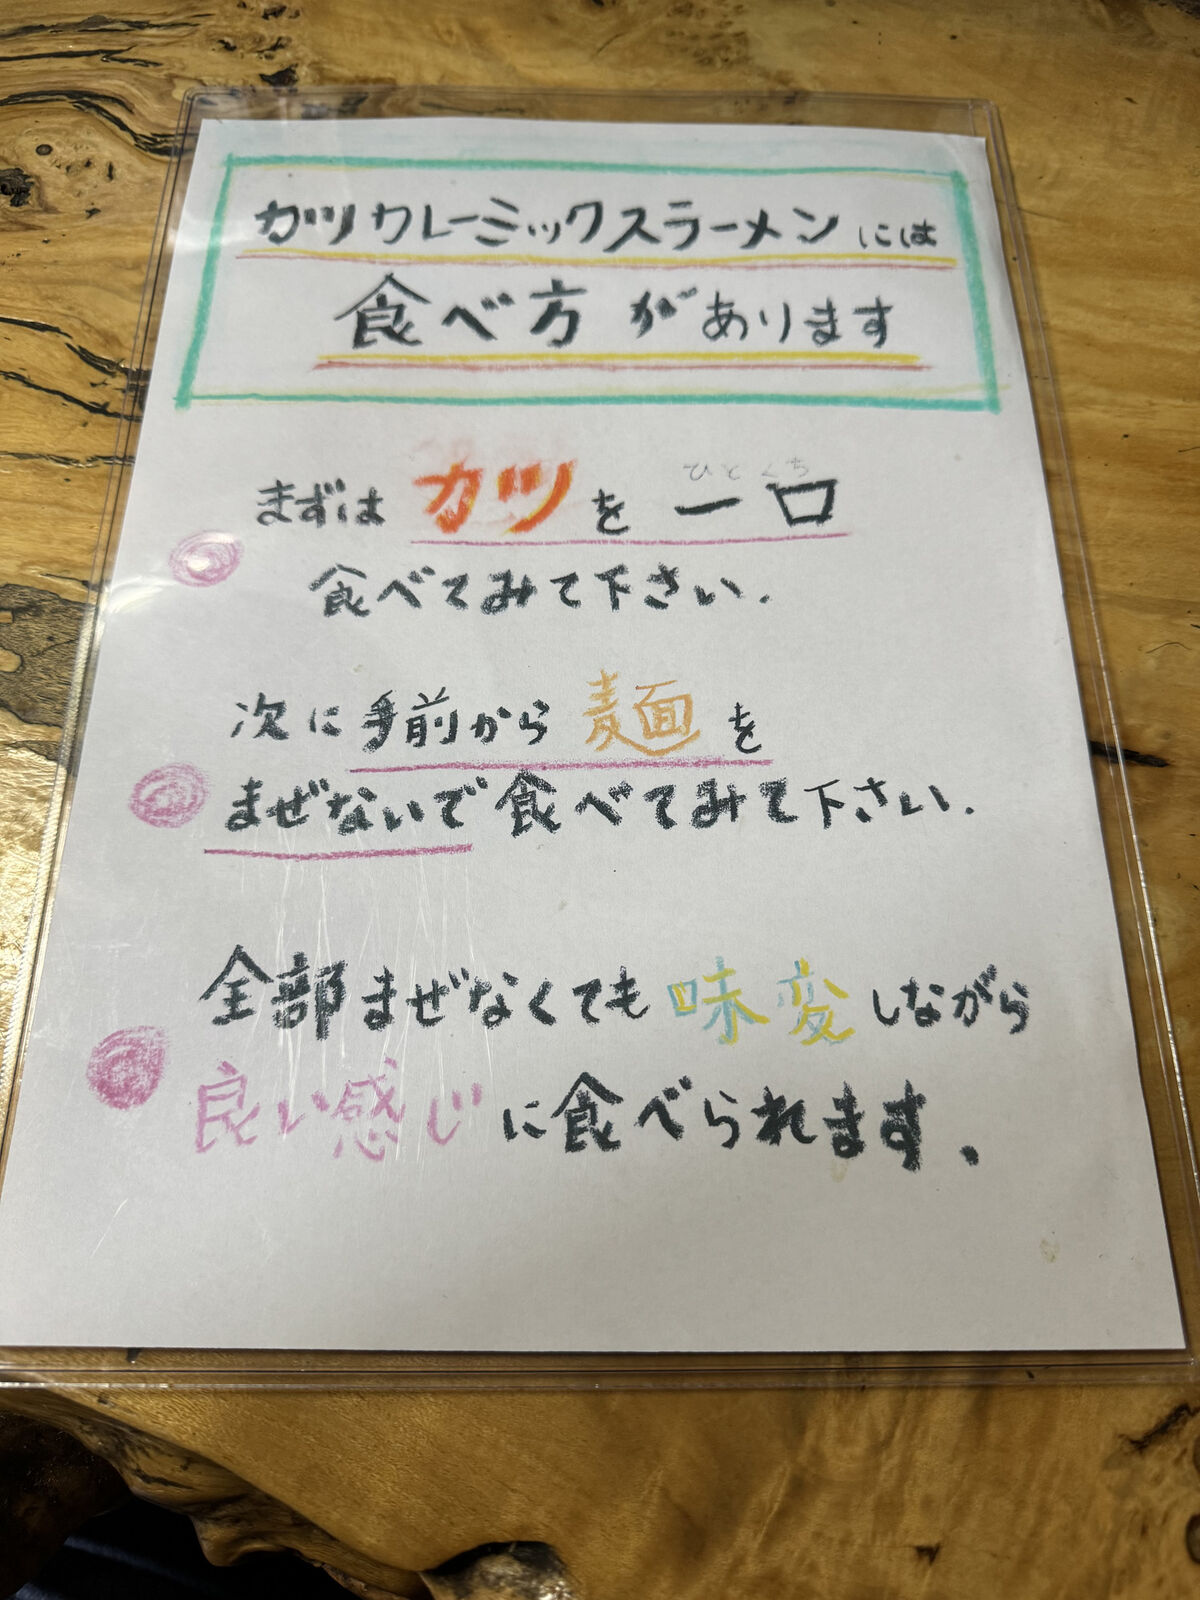 カツカレーミックスラーメンには
食べ方があります
まずはカツを一口
ひとくち
食べてみて下さい.
次に手前から麺を
まぜないで食べてみて下さい.
全部まぜなくても味変しながら
良い感じに食べられます.